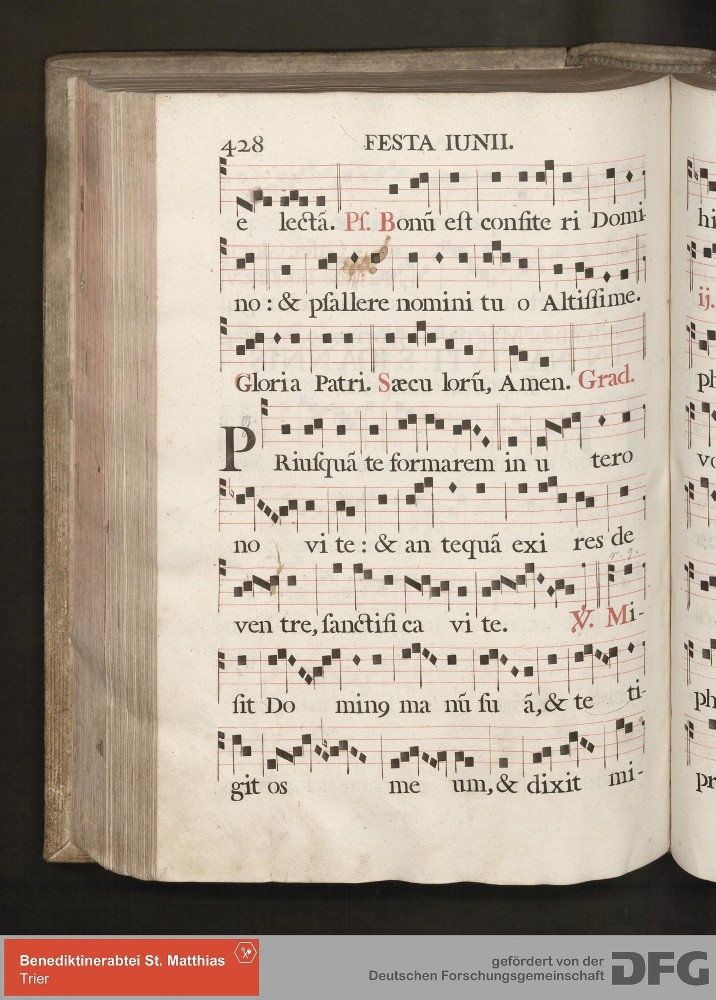 428 FESTA IUNII.
e lectã. Pſ. Bonũ eſt confite ri Domi-
no: & pſallere nomini tu o Altiſſime.
Gloria Patri. Sæcu lorũ, Amen. Grad.
PRiuſquã te formarem in u tero
no vi te: & an tequã exi res de
ven tre, ſanctifi ca vi te. ℣. Mi-
ſit Do minꝰ ma nũ ſu ã, & te ti-
git os me um, & dixit mi-
hi
ij.
ph
vo
ph
pr
Benediktinerabtei St. Matthias
Trier
gefördert von der
Deutschen Forschungsgemeinschaft DFG